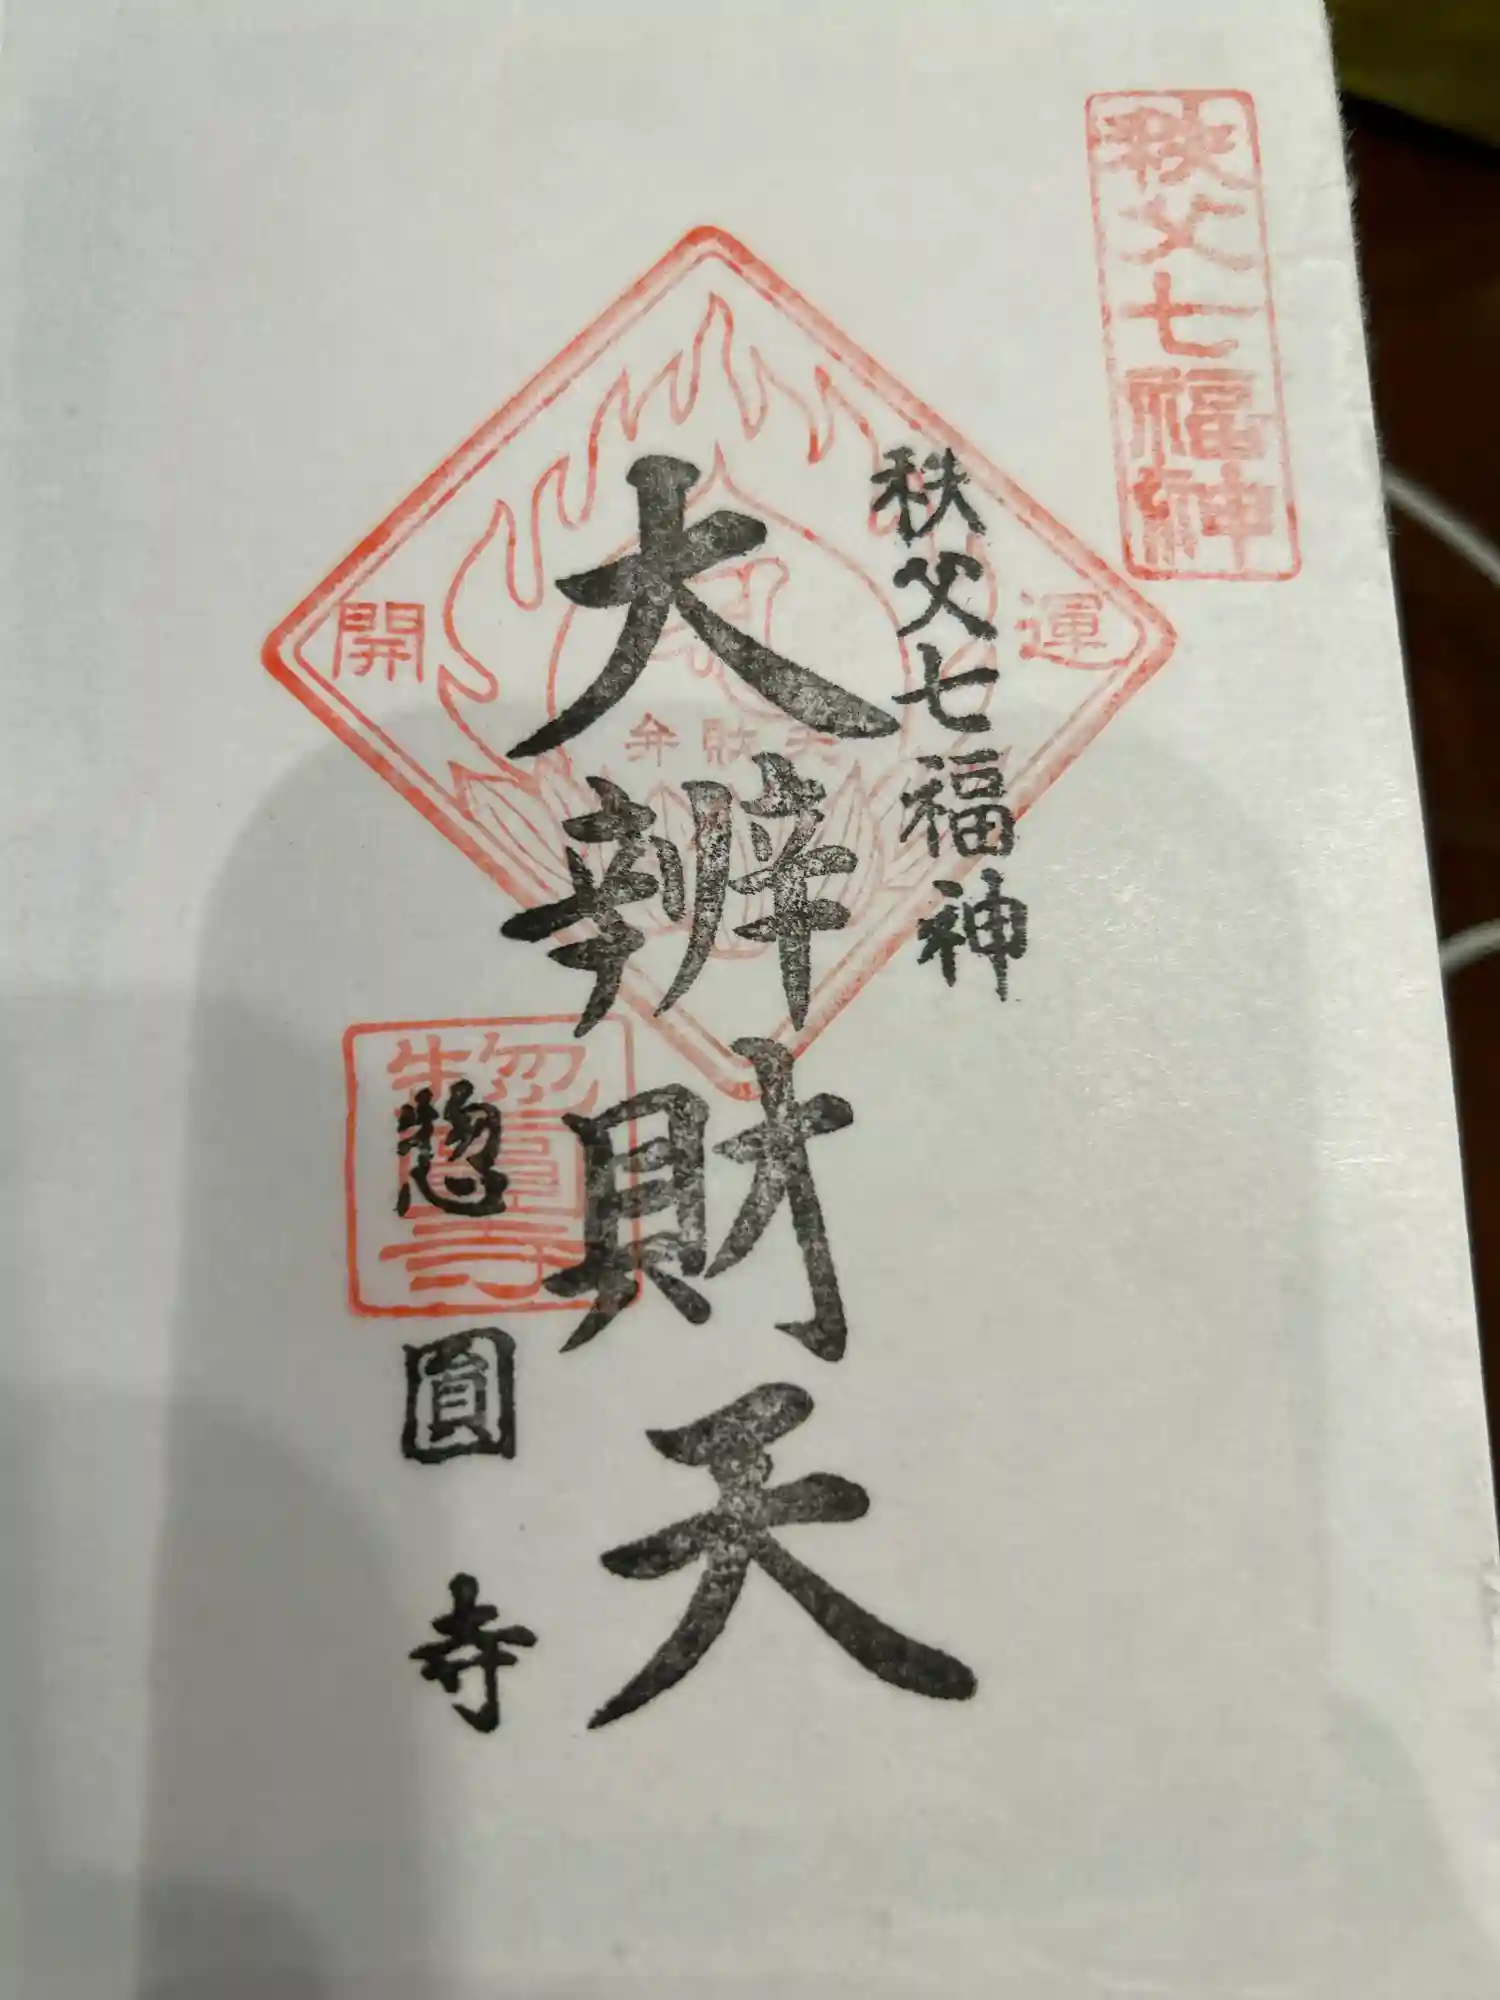 秩父七福神
秩父七福神
開
運
弁財天
大辨財天
惣圓寺
惣圓寺